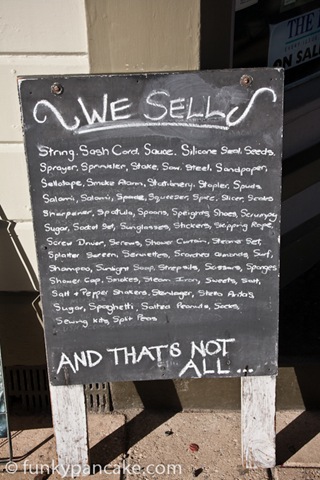 WE SELL
String. Sash Cord. Sauce. Silicone Seal. Seeds.
Sprayer, Sprinkler, Stake. Saw. Steel. Sandpaper,
Sellotape, Smoke Alarm, Stationery, Stapler, Spuds,
Salami, Salami, Squeezer, Spire, Slicer, Seats
Sharpener, Spatula, Spoons, Speights, Shoes, Scrumpy
Sugar, Socket Set, Sunglasses, Stickers, Skipping Rope
Screw Driver, Screws, Shower Curtain, Steamer Set,
Splatter Screen, Serviettes, Scorched Almonds, Surf,
Shampoo, Sunlight Soap, Strepsils, Scissors, Sponges
Shower Cap, Smokes, Steam Iron, Sweets, Salt,
Salt + Pepper Shakers, Steinlager, Stella Artois,
Sugar, Spaghetti, Salted Peanuts, Socks,
Sewing kits, Split Peas
AND THAT'S NOT
ALL ...
THE
ON SALE
© funkypancake.com